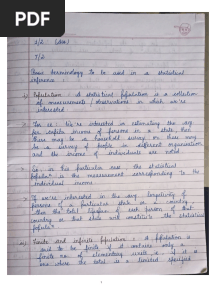 PDF
2/2 (Aaa)
7/2
Basic terminology to be used in a statistical
inference :
Population : A statistical population is a collection
of measurements / observations in which we're
interested
For ex : We're interested in estimating the avg
per capita income of persons in a state, then
there may be a household survey or there may
be a survey of people in different organisation
and the incomes of individuals are noted
So, in this particular case, the statistical
populatn is the measurement corresponding to the
individual income
If we're interested in the avg. longevity of
persons of a particular state or a country
then the total lifespan of each person of that
country or that state will constitute the statistical
populatn
Finite and infinite population : A population is
said to be finite if it contains only a
finite no. of elementary units, i.e. if it is
one where the total is a limited specified